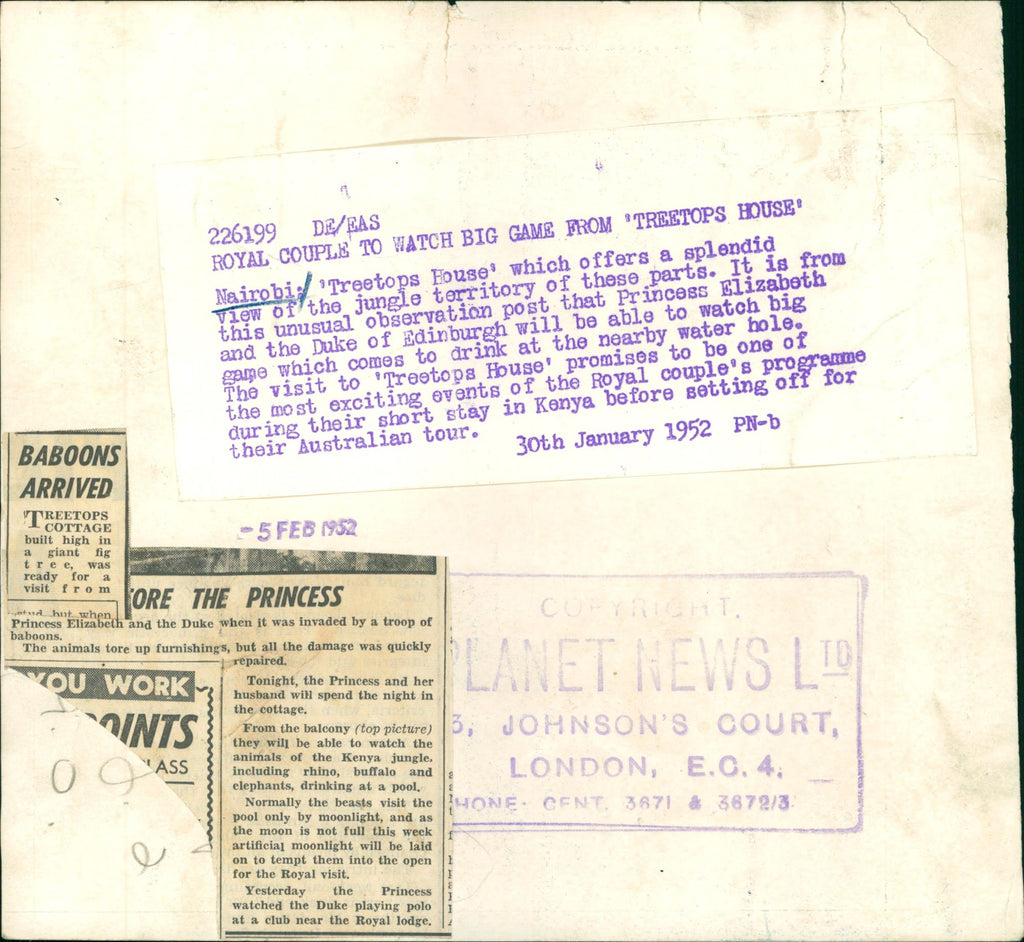 226199 DE/EAS
ROYAL COUPLE TO WATCH BIG GAME FROM 'TREETOPS HOUSE'
Nairobi: 'Treetops House' which offers a splendid
view of the jungle territory of these parts. It is from
this unusual observation post that Princess Elizabeth
and the Duke of Edinburgh will be able to watch big
game which comes to drink at the nearby water hole.
The visit to 'Treetops House' promises to be one of
the most exciting events of the Royal couple's programme
during their short stay in Kenya before setting off for
their Australian tour. 30th January 1952 PN-b
-5 FEB 1952
BABOONS
ARRIVED
TREETOPS
COTTAGE
built high in
a giant fig
tree, was
ready for a
visit from
but when
ORE THE PRINCESS
Princess Elizabeth and the Duke when it was invaded by a troop of
baboons.
The animals tore up furnishings, but all the damage was quickly
repaired.
Tonight, the Princess and her
husband will spend the night in
the cottage.
From the balcony (top picture)
they will be able to watch the
animals of the Kenya jungle,
including rhino, buffalo and
elephants, drinking at a pool.
Normally the beasts visit the
pool only by moonlight, and as
the moon is not full this week
artificial moonlight will be laid
on to tempt them into the open
for the Royal visit.
Yesterday the Princess
watched the Duke playing polo
at a club near the Royal lodge.
YOU WORK
OINTS
LASS
COPYRIGHT.
PLANET NEWS LTD
3, JOHNSON'S COURT,
LONDON, E.C.4.
HONE- CENT. 3671 & 3672/3